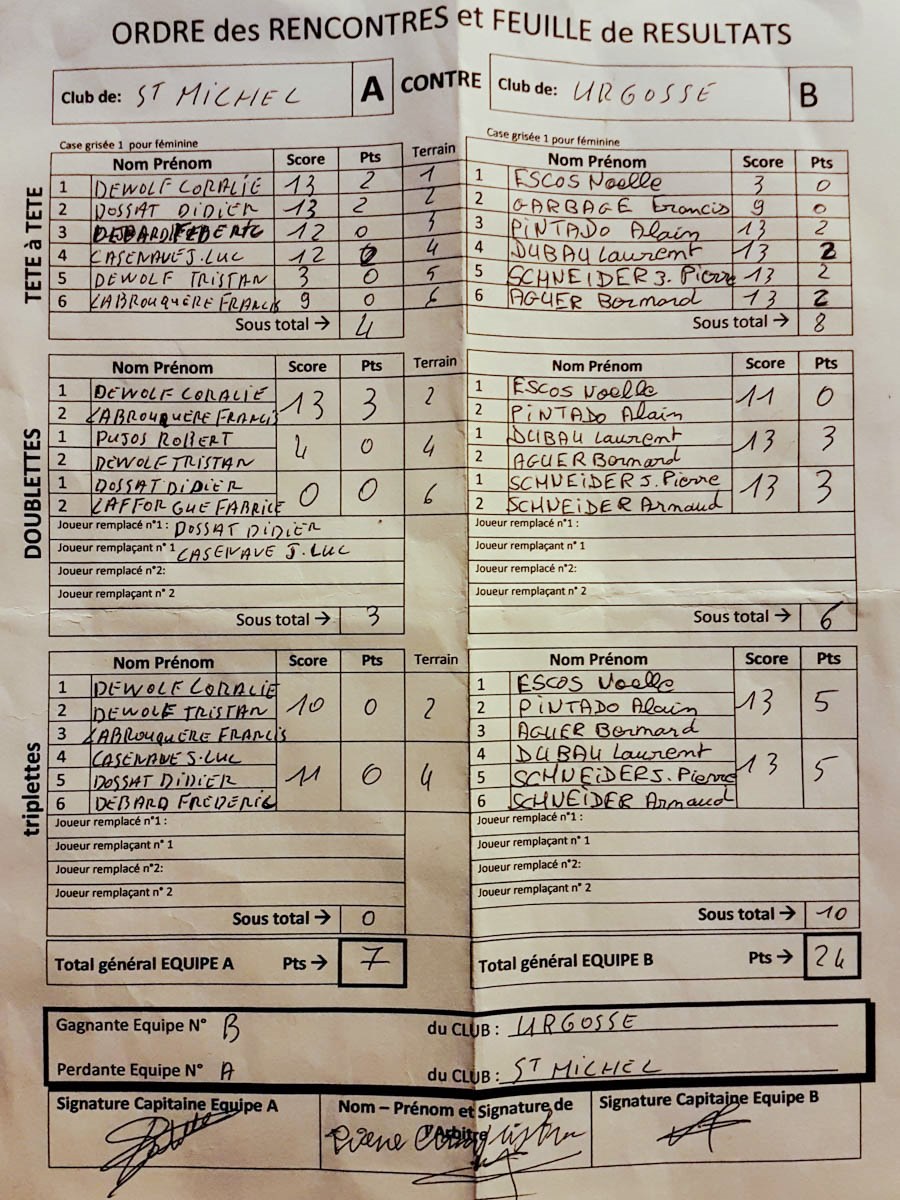 ORDRE des RENCONTRES et FEUILLE de RESULTATS
Club de: ST MiCHEL A CONTRE Club de: URGOSSE B
Case grisée 1 pour féminine Case grisée 1 pour féminine
TETE à TETE
Nom Prénom Score Pts Terrain Nom Prénom Score Pts
1 DEWOLF CORALiE 13 2 1 1 ESCOS Noelle 3 0
2 DOSSAT DiDiER 13 2 2 2 GARBAGE Francis 9 0
3 DEBARD FREDERiC 12 0 3 3 PiNTADO Alain 13 2
4 CASENAVE J.LUC 12 0 4 4 DUBAU Laurent 13 2
5 DEWOLF TRiSTAN 3 0 5 5 SCHNEiDER J. Pierre 13 2
6 LABROUQUÈRE FRANCiS 9 0 6 6 AGUER Bernard 13 2
Sous total → 4 Sous total → 8
DOUBLETTES
Nom Prénom Score Pts Terrain Nom Prénom Score Pts
1 DEWOLF CORALiE 13 3 2 1 ESCOS Noelle 11 0
2 LABROUQUÈRE FRANCiS 2 PiNTADO Alain
1 PUJOS ROBERT 4 0 4 1 DUBAU Laurent 13 3
2 DEWOLF TRiSTAN 2 AGUER Bernard
1 DOSSAT DiDiER 0 0 6 1 SCHNEiDER J. Pierre 13 3
2 LAFFORGUE FABRiCE 2 SCHNEiDER Arnaud
Joueur remplacé n°1 : DOSSAT DiDiER Joueur remplacé n°1 :
Joueur remplaçant n° 1 CASENAVE J.LUC Joueur remplaçant n° 1
Joueur remplacé n°2: Joueur remplacé n°2:
Joueur remplaçant n° 2 Joueur remplaçant n° 2
Sous total → 3 Sous total → 6
triplettes
Nom Prénom Score Pts Terrain Nom Prénom Score Pts
1 DEWOLF CORALiE 10 0 2 1 ESCOS Noelle 13 5
2 DEWOLF TRiSTAN 2 PiNTADO Alain
3 LABROUQUÈRE FRANCiS 3 AGUER Bernard
4 CASENAVE J.LUC 11 0 4 4 DUBAU Laurent 13 5
5 DOSSAT DiDiER 5 SCHNEiDER J. Pierre
6 DEBARD FREDERiC 6 SCHNEiDER Arnaud
Joueur remplacé n°1 : Joueur remplacé n°1 :
Joueur remplaçant n° 1 Joueur remplaçant n° 1
Joueur remplacé n°2: Joueur remplacé n°2:
Joueur remplaçant n° 2 Joueur remplaçant n° 2
Sous total → 0 Sous total → 10
Total général EQUIPE A Pts → 7 Total général EQUIPE B Pts → 24
Gagnante Equipe N° B du CLUB : URGOSSE
Perdante Equipe N° A du CLUB : ST MiCHEL
Signature Capitaine Equipe A Nom – Prénom et Signature de l'Arbitre Signature Capitaine Equipe B